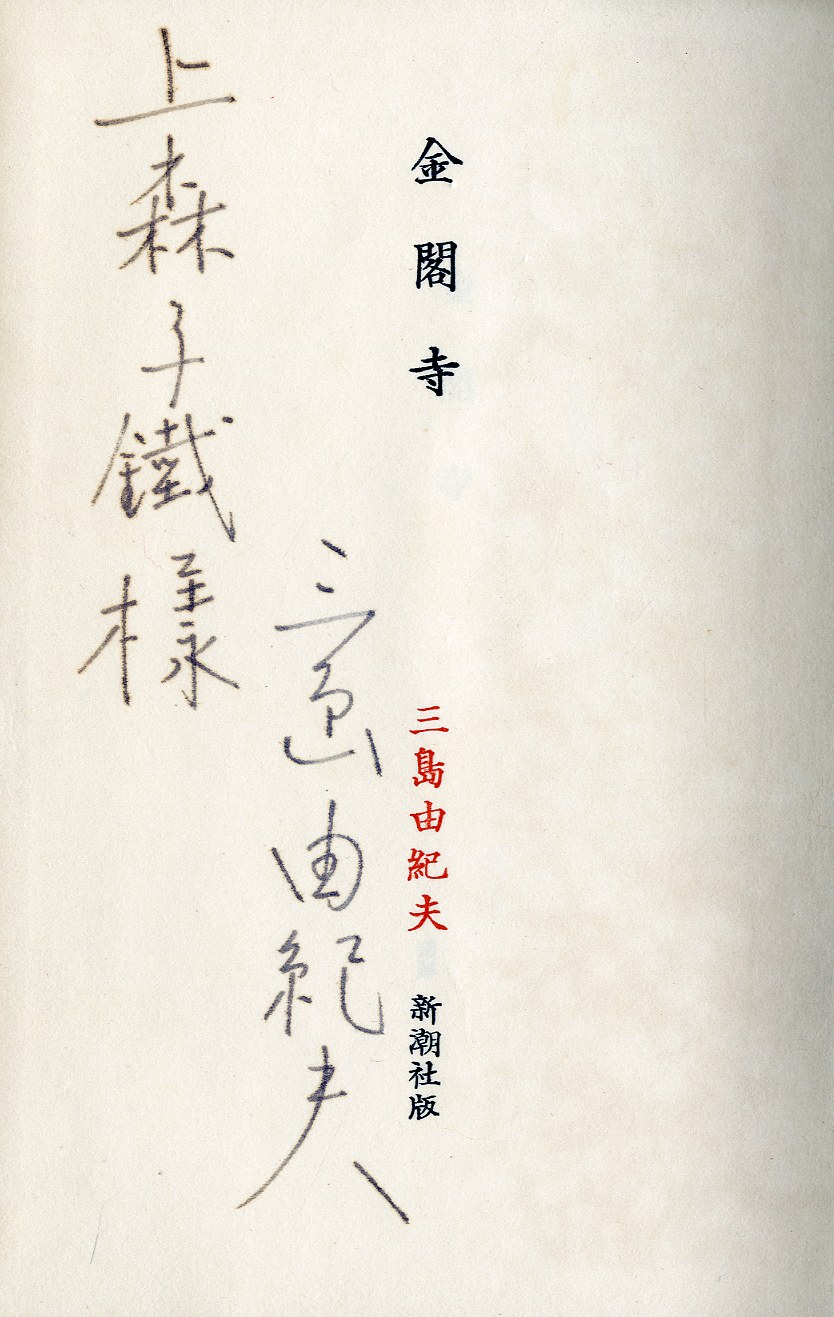 金閣寺
三島由紀夫
新潮社版
三島由紀夫
上森子鐵樣